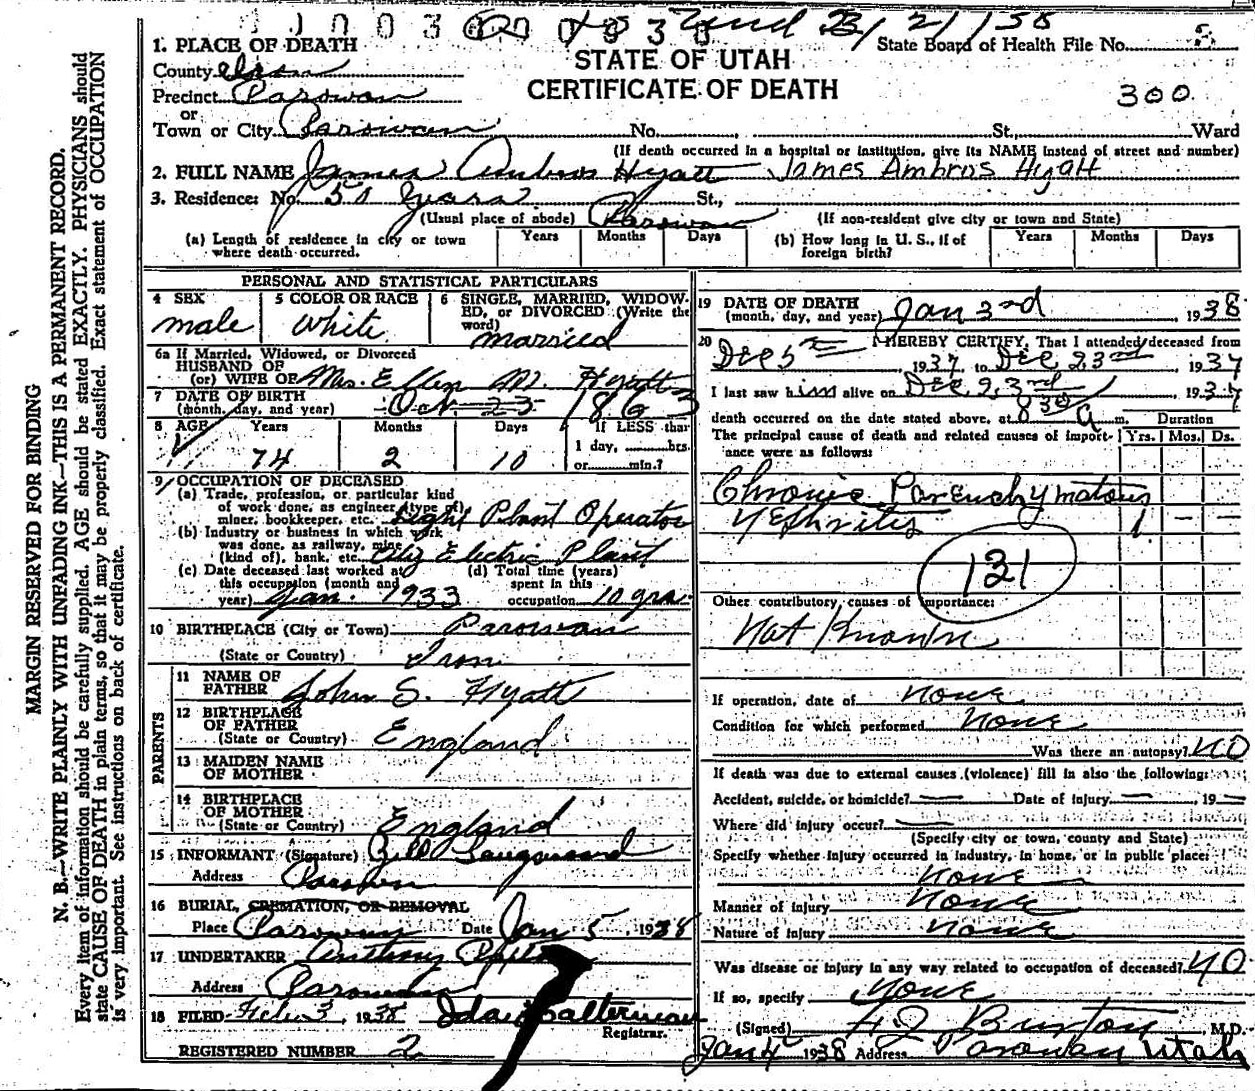 1 1 0 0 3 8 0 0 8 3 0 3/21/38
1. PLACE OF DEATH
County Iron
Precinct Parowan
or
Town or City Parowan No. , St., Ward
State Board of Health File No. 5
STATE OF UTAH
CERTIFICATE OF DEATH
300
(If death occurred in a hospital or institution, give its NAME instead of street and number)
2. FULL NAME James Ambros Hyatt James Ambros Hyatt
3. Residence: No. 50 years St.,
(Usual place of abode) Parowan (If non-resident give city or town and State)
(a) Length of residence in city or town where death occurred. Years Months Days (b) How long in U. S., if of foreign birth? Years Months Days
PERSONAL AND STATISTICAL PARTICULARS
4 SEX male
5 COLOR OR RACE White
6 SINGLE, MARRIED, WIDOWED, or DIVORCED (Write the word) married
6a If Married, Widowed, or Divorced
HUSBAND OF
(or) WIFE OF Mrs. Ellen M. Hyatt
7 DATE OF BIRTH
(month, day, and year) Oct. 23 1863
8 AGE Years Months Days If LESS than
1 day, hrs.
74 2 10 or min.?
9 OCCUPATION OF DECEASED
(a) Trade, profession, or particular kind
of work done, as engineer (type of)
miner, bookkeeper, etc. Light Plant Operator
(b) Industry or business in which work
was done, as railway, mine
(kind of), bank, etc. City Electric Plant
(c) Date deceased last worked at
this occupation (month and
year) Jan. 1933
(d) Total time (years)
spent in this
occupation 10 yrs.
10 BIRTHPLACE (City or Town) Parowan
(State or Country) Iron
PARENTS
11 NAME OF
FATHER John S. Hyatt
12 BIRTHPLACE
OF FATHER
(State or Country) England
13 MAIDEN NAME
OF MOTHER
14 BIRTHPLACE
OF MOTHER
(State or Country) England
15 INFORMANT (Signature) Bill
Address Parowan
16 BURIAL, CREMATION, OR REMOVAL
Place Parowan Date Jan 5, 1938
17 UNDERTAKER Anthony
Address Parowan
18 FILED Feb. 3, 1938 Ida
Registrar.
REGISTERED NUMBER 2
19 DATE OF DEATH
(month, day, and year) Jan 3rd 1938
20 I HEREBY CERTIFY, That I attended deceased from
Dec 5th, 1937, to Dec 23rd 1937
I last saw him alive on Dec 23rd, 1937
death occurred on the date stated above, at 8 30 a m. Duration
The principal cause of death and related causes of importance were as follows: Yrs. Mos. Ds.
Chronic Parenchymatous
Nephritis 1 — —
131
Other contributory causes of importance:
Not Known
If operation, date of none
Condition for which performed None
Was there an autopsy? NO
If death was due to external causes (violence) fill in also the following:
Accident, suicide, or homicide? — Date of injury —, 19 —
Where did injury occur? —
(Specify city or town, county and State)
Specify whether injury occurred in industry, in home, or in public place:
None
Manner of injury None
Nature of injury None
Was disease or injury in any way related to occupation of deceased? NO
If so, specify None
(Signed) Burton M.D.
Jan 4 1938 Address Parowan Utah
MARGIN RESERVED FOR BINDING
N. B.—WRITE PLAINLY WITH UNFADING INK—THIS IS A PERMANENT RECORD.
Every item of information should be carefully supplied. AGE should be stated EXACTLY. PHYSICIANS should
state CAUSE OF DEATH in plain terms, so that it may be properly classified. Exact statement of OCCUPATION
is very important. See instructions on back of certificate.